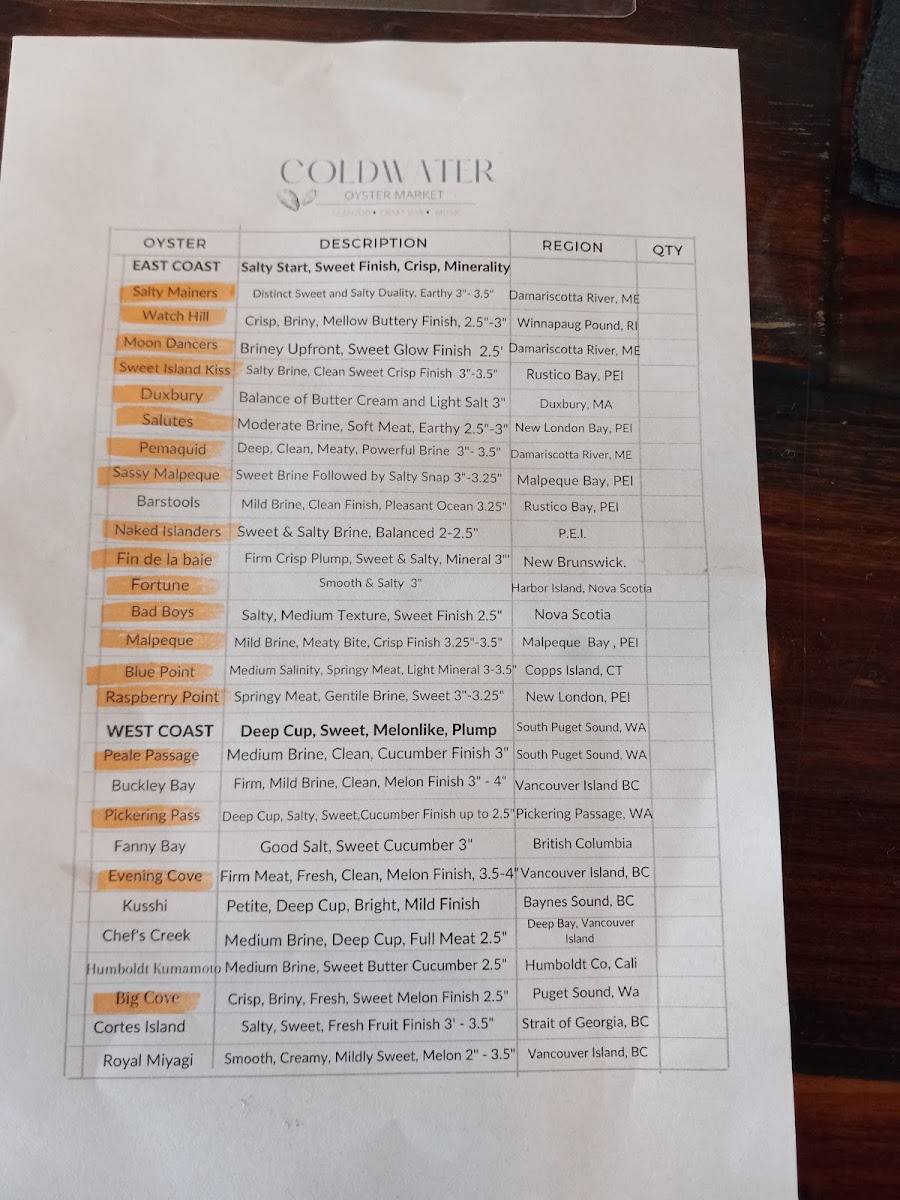 COLDWATER
OYSTER MARKET
OYSTER DESCRIPTION REGION QTY
EAST COAST Salty Start, Sweet Finish, Crisp, Minerality
Salty Mainers Distinct Sweet and Salty Duality, Earthy 3"- 3.5" Damariscotta River, ME
Watch Hill Crisp, Briny, Mellow Buttery Finish, 2.5"-3" Winnapaug Pound, RI
Moon Dancers Briney Upfront, Sweet Glow Finish 2.5' Damariscotta River, ME
Sweet Island Kiss Salty Brine, Clean Sweet Crisp Finish 3"-3.5" Rustico Bay, PEI
Duxbury Balance of Butter Cream and Light Salt 3" Duxbury, MA
Salutes Moderate Brine, Soft Meat, Earthy 2.5"-3" New London Bay, PEI
Pemaquid Deep, Clean, Meaty, Powerful Brine 3"- 3.5" Damariscotta River, ME
Sassy Malpeque Sweet Brine Followed by Salty Snap 3"-3.25" Malpeque Bay, PEI
Barstools Mild Brine, Clean Finish, Pleasant Ocean 3.25" Rustico Bay, PEI
Naked Islanders Sweet & Salty Brine, Balanced 2-2.5" P.E.I.
Fin de la baie Firm Crisp Plump, Sweet & Salty, Mineral 3"' New Brunswick.
Fortune Smooth & Salty 3" Harbor Island, Nova Scotia
Bad Boys Salty, Medium Texture, Sweet Finish 2.5" Nova Scotia
Malpeque Mild Brine, Meaty Bite, Crisp Finish 3.25"-3.5" Malpeque Bay , PEI
Blue Point Medium Salinity, Springy Meat, Light Mineral 3-3.5" Copps Island, CT
Raspberry Point Springy Meat, Gentile Brine, Sweet 3"-3.25" New London, PEI
WEST COAST Deep Cup, Sweet, Melonlike, Plump South Puget Sound, WA
Peale Passage Medium Brine, Clean, Cucumber Finish 3" South Puget Sound, WA
Buckley Bay Firm, Mild Brine, Clean, Melon Finish 3" - 4" Vancouver Island BC
Pickering Pass Deep Cup, Salty, Sweet,Cucumber Finish up to 2.5" Pickering Passage, WA
Fanny Bay Good Salt, Sweet Cucumber 3" British Columbia
Evening Cove Firm Meat, Fresh, Clean, Melon Finish, 3.5-4" Vancouver Island, BC
Kusshi Petite, Deep Cup, Bright, Mild Finish Baynes Sound, BC
Chef's Creek Medium Brine, Deep Cup, Full Meat 2.5" Deep Bay, Vancouver
Island
Humboldt Kumamoto Medium Brine, Sweet Butter Cucumber 2.5" Humboldt Co, Cali
Big Cove Crisp, Briny, Fresh, Sweet Melon Finish 2.5" Puget Sound, Wa
Cortes Island Salty, Sweet, Fresh Fruit Finish 3' - 3.5" Strait of Georgia, BC
Royal Miyagi Smooth, Creamy, Mildly Sweet, Melon 2" - 3.5" Vancouver Island, BC